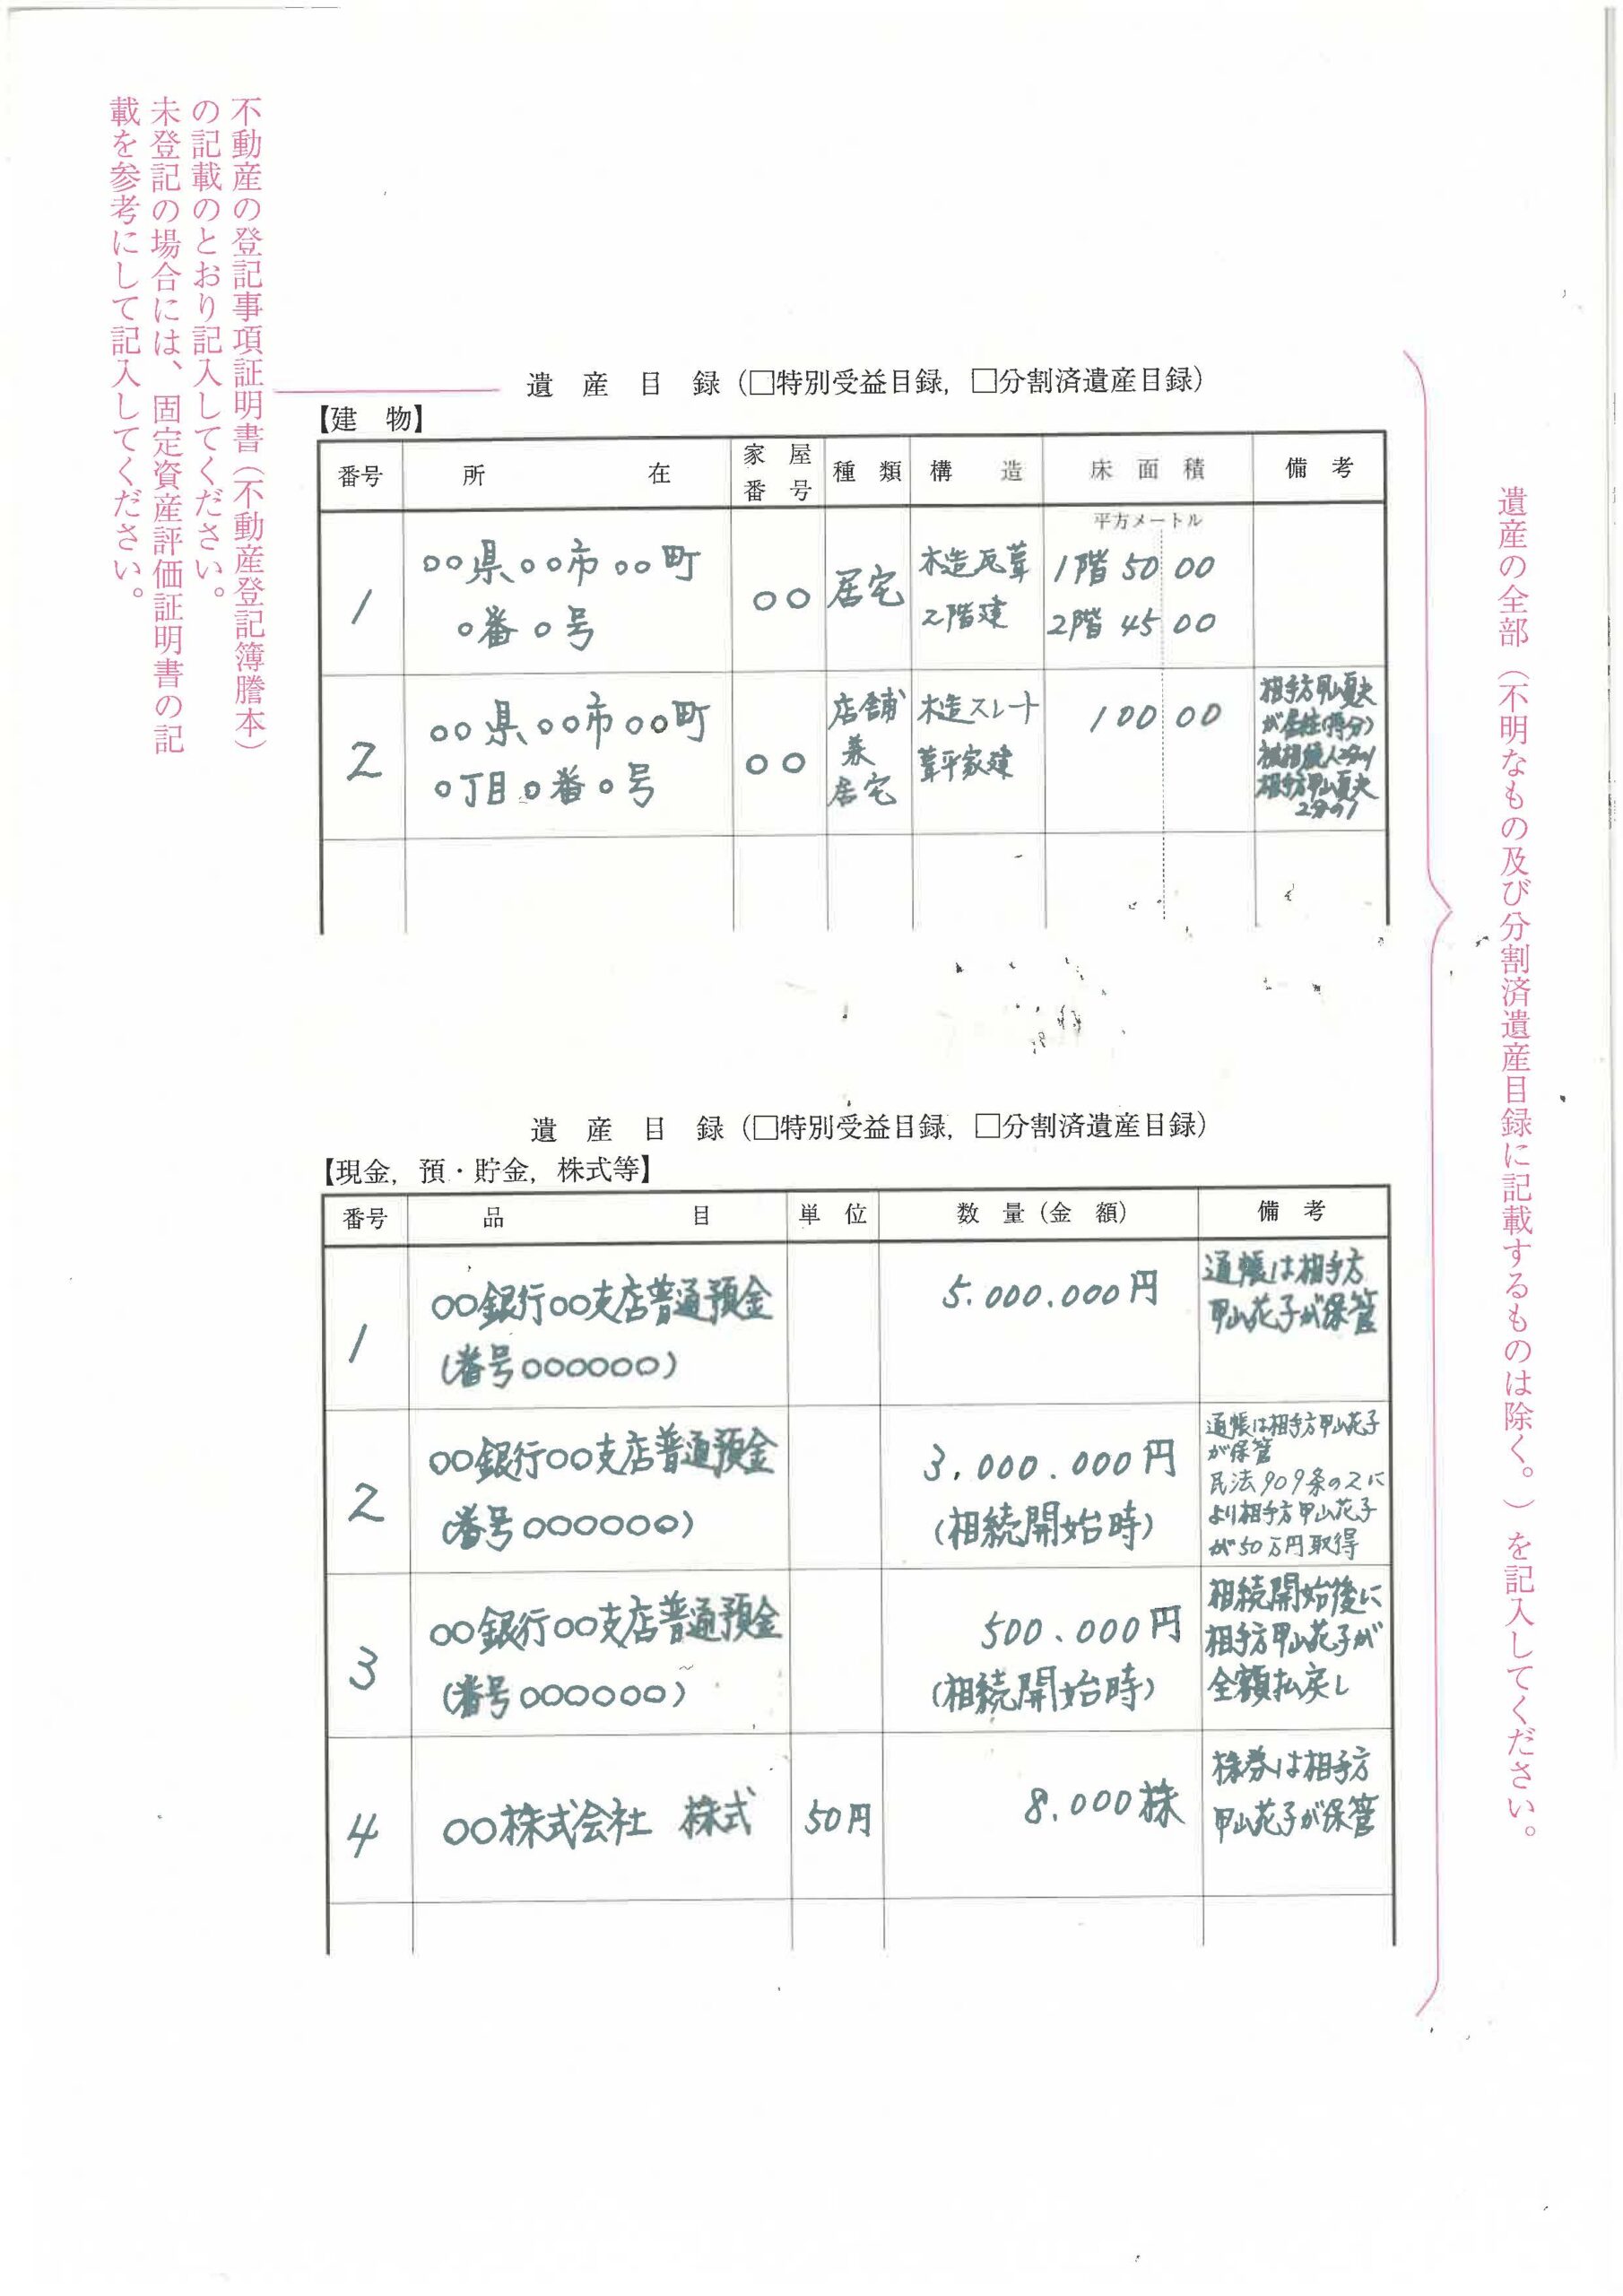 不動産の登記事項証明書(不動産登記簿謄本)
の記載のとおり記入してください。
未登記の場合には、固定資産評価証明書の記
載を参考にして記入してください。
遺産目録(□特別受益目録,□分割済遺産目録)
【建物】
番号 所在 家屋番号 種類 構造 床面積 備考
平方メートル
1 ○○県○○市○○町 ○○ 居宅 木造瓦葺 1階 50 00
○番○号 2階建 2階 45 00
2 ○○県○○市○○町 ○○ 店舗 木造スレート 100 00 相手方甲山夏夫
○丁目○番○号 兼 葺平家建 が居住(持分)
居宅 被相続人2分の1
相手方甲山夏夫
2分の1
遺産目録(□特別受益目録,□分割済遺産目録)
【現金,預・貯金,株式等】
番号 品目 単位 数量(金額) 備考
1 ○○銀行○○支店普通預金 5.000.000円 通帳は相手方
(番号○○○○○○) 甲山花子が保管
2 ○○銀行○○支店普通預金 3,000.000円 通帳は相手方甲山花子
(番号○○○○○○) (相続開始時) が保管
民法909条の2に
より相手方甲山花子
が50万円取得
3 ○○銀行○○支店普通預金 500、000円 相続開始後に
(番号○○○○○○) (相続開始時) 相手方甲山花子が
全額払戻し
4 ○○株式会社 株式 50円 8.000株 株券は相手方
甲山花子が保管
遺産の全部(不明なもの及び分割済遺産目録に記載するものは除く。)を記入してください。